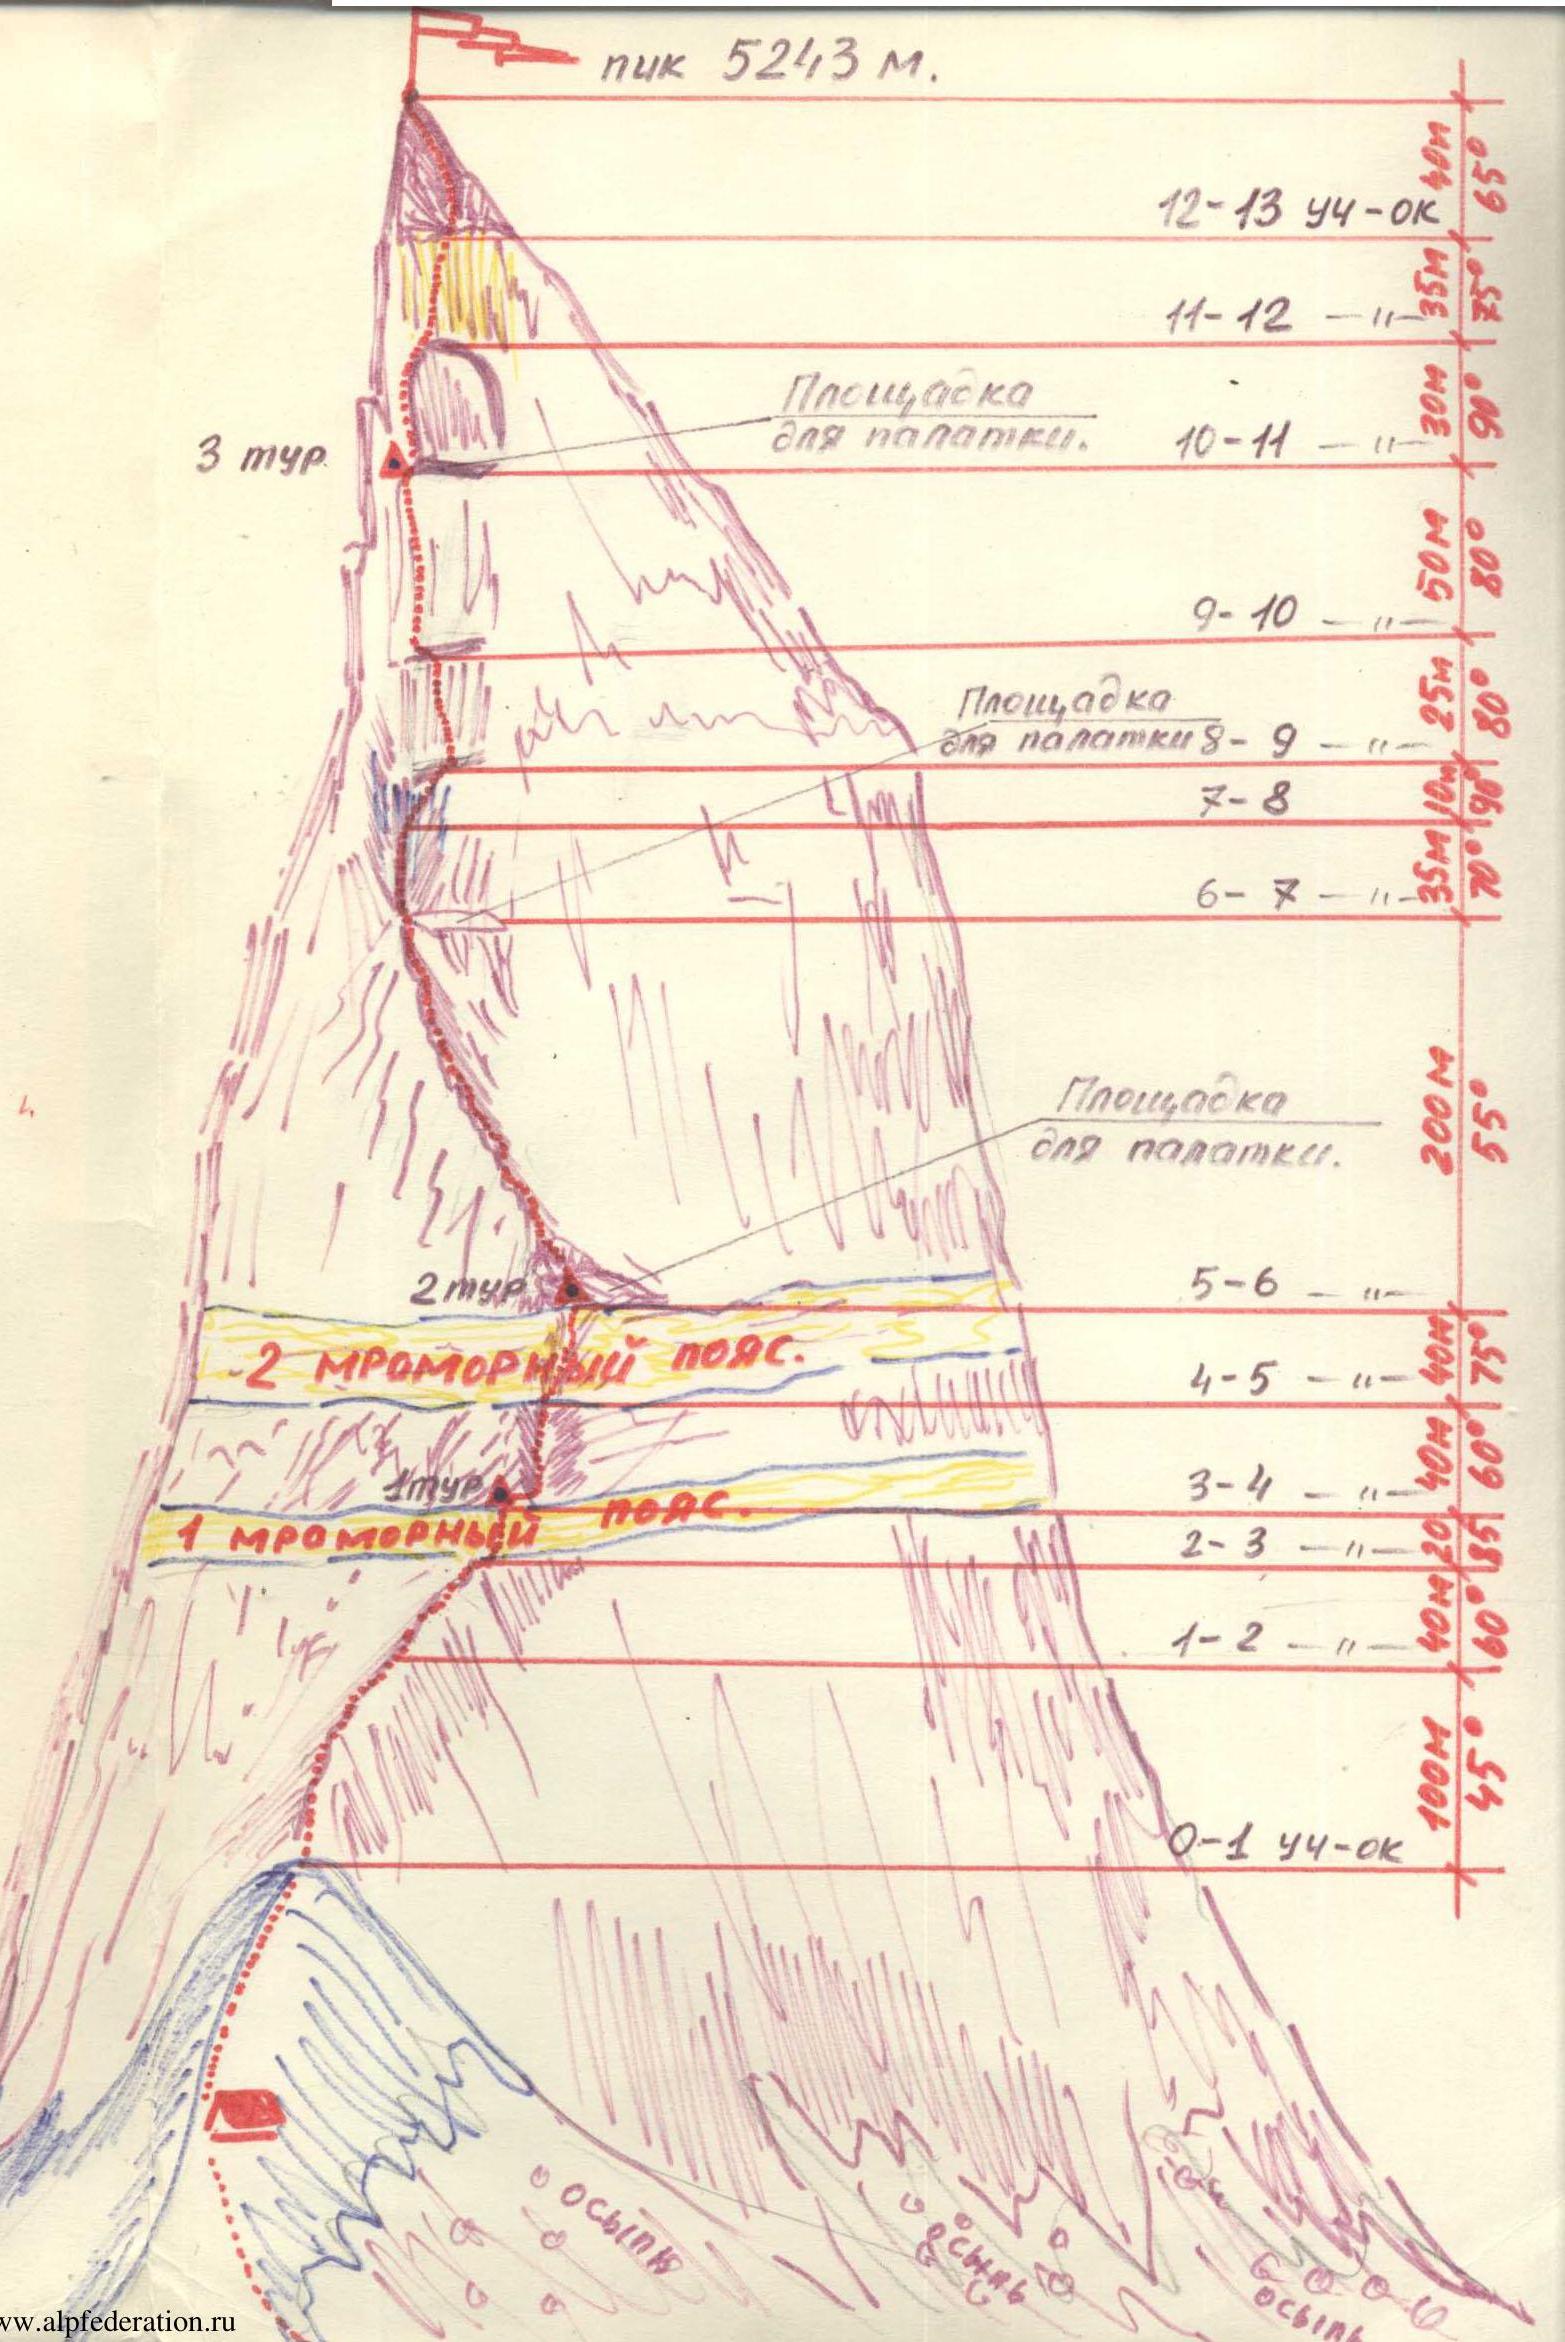 пик 5243 м.
40м 65°
12-13 уч-ок
35м 75°
11-12 —"—
Площадка
для палатки.
30м 90°
10-11 —"—
3 тур
50м 80°
9-10 —"—
Площадка
для палатки
25м 80°
8-9 —"—
10м 90°
7-8
35м 70°
6-7 —"—
200м 55°
Площадка
для палатки.
5-6 —"—
2 тур
40м 75°
2 мраморный пояс.
4-5 —"—
40м 60°
1 тур
3-4 —"—
20 85
1 мраморный пояс.
2-3 —"—
40м 60°
1-2 —"—
100м 45°
0-1 уч-ок
осыпь
осыпь
осыпь
ww.alpfederation.ru